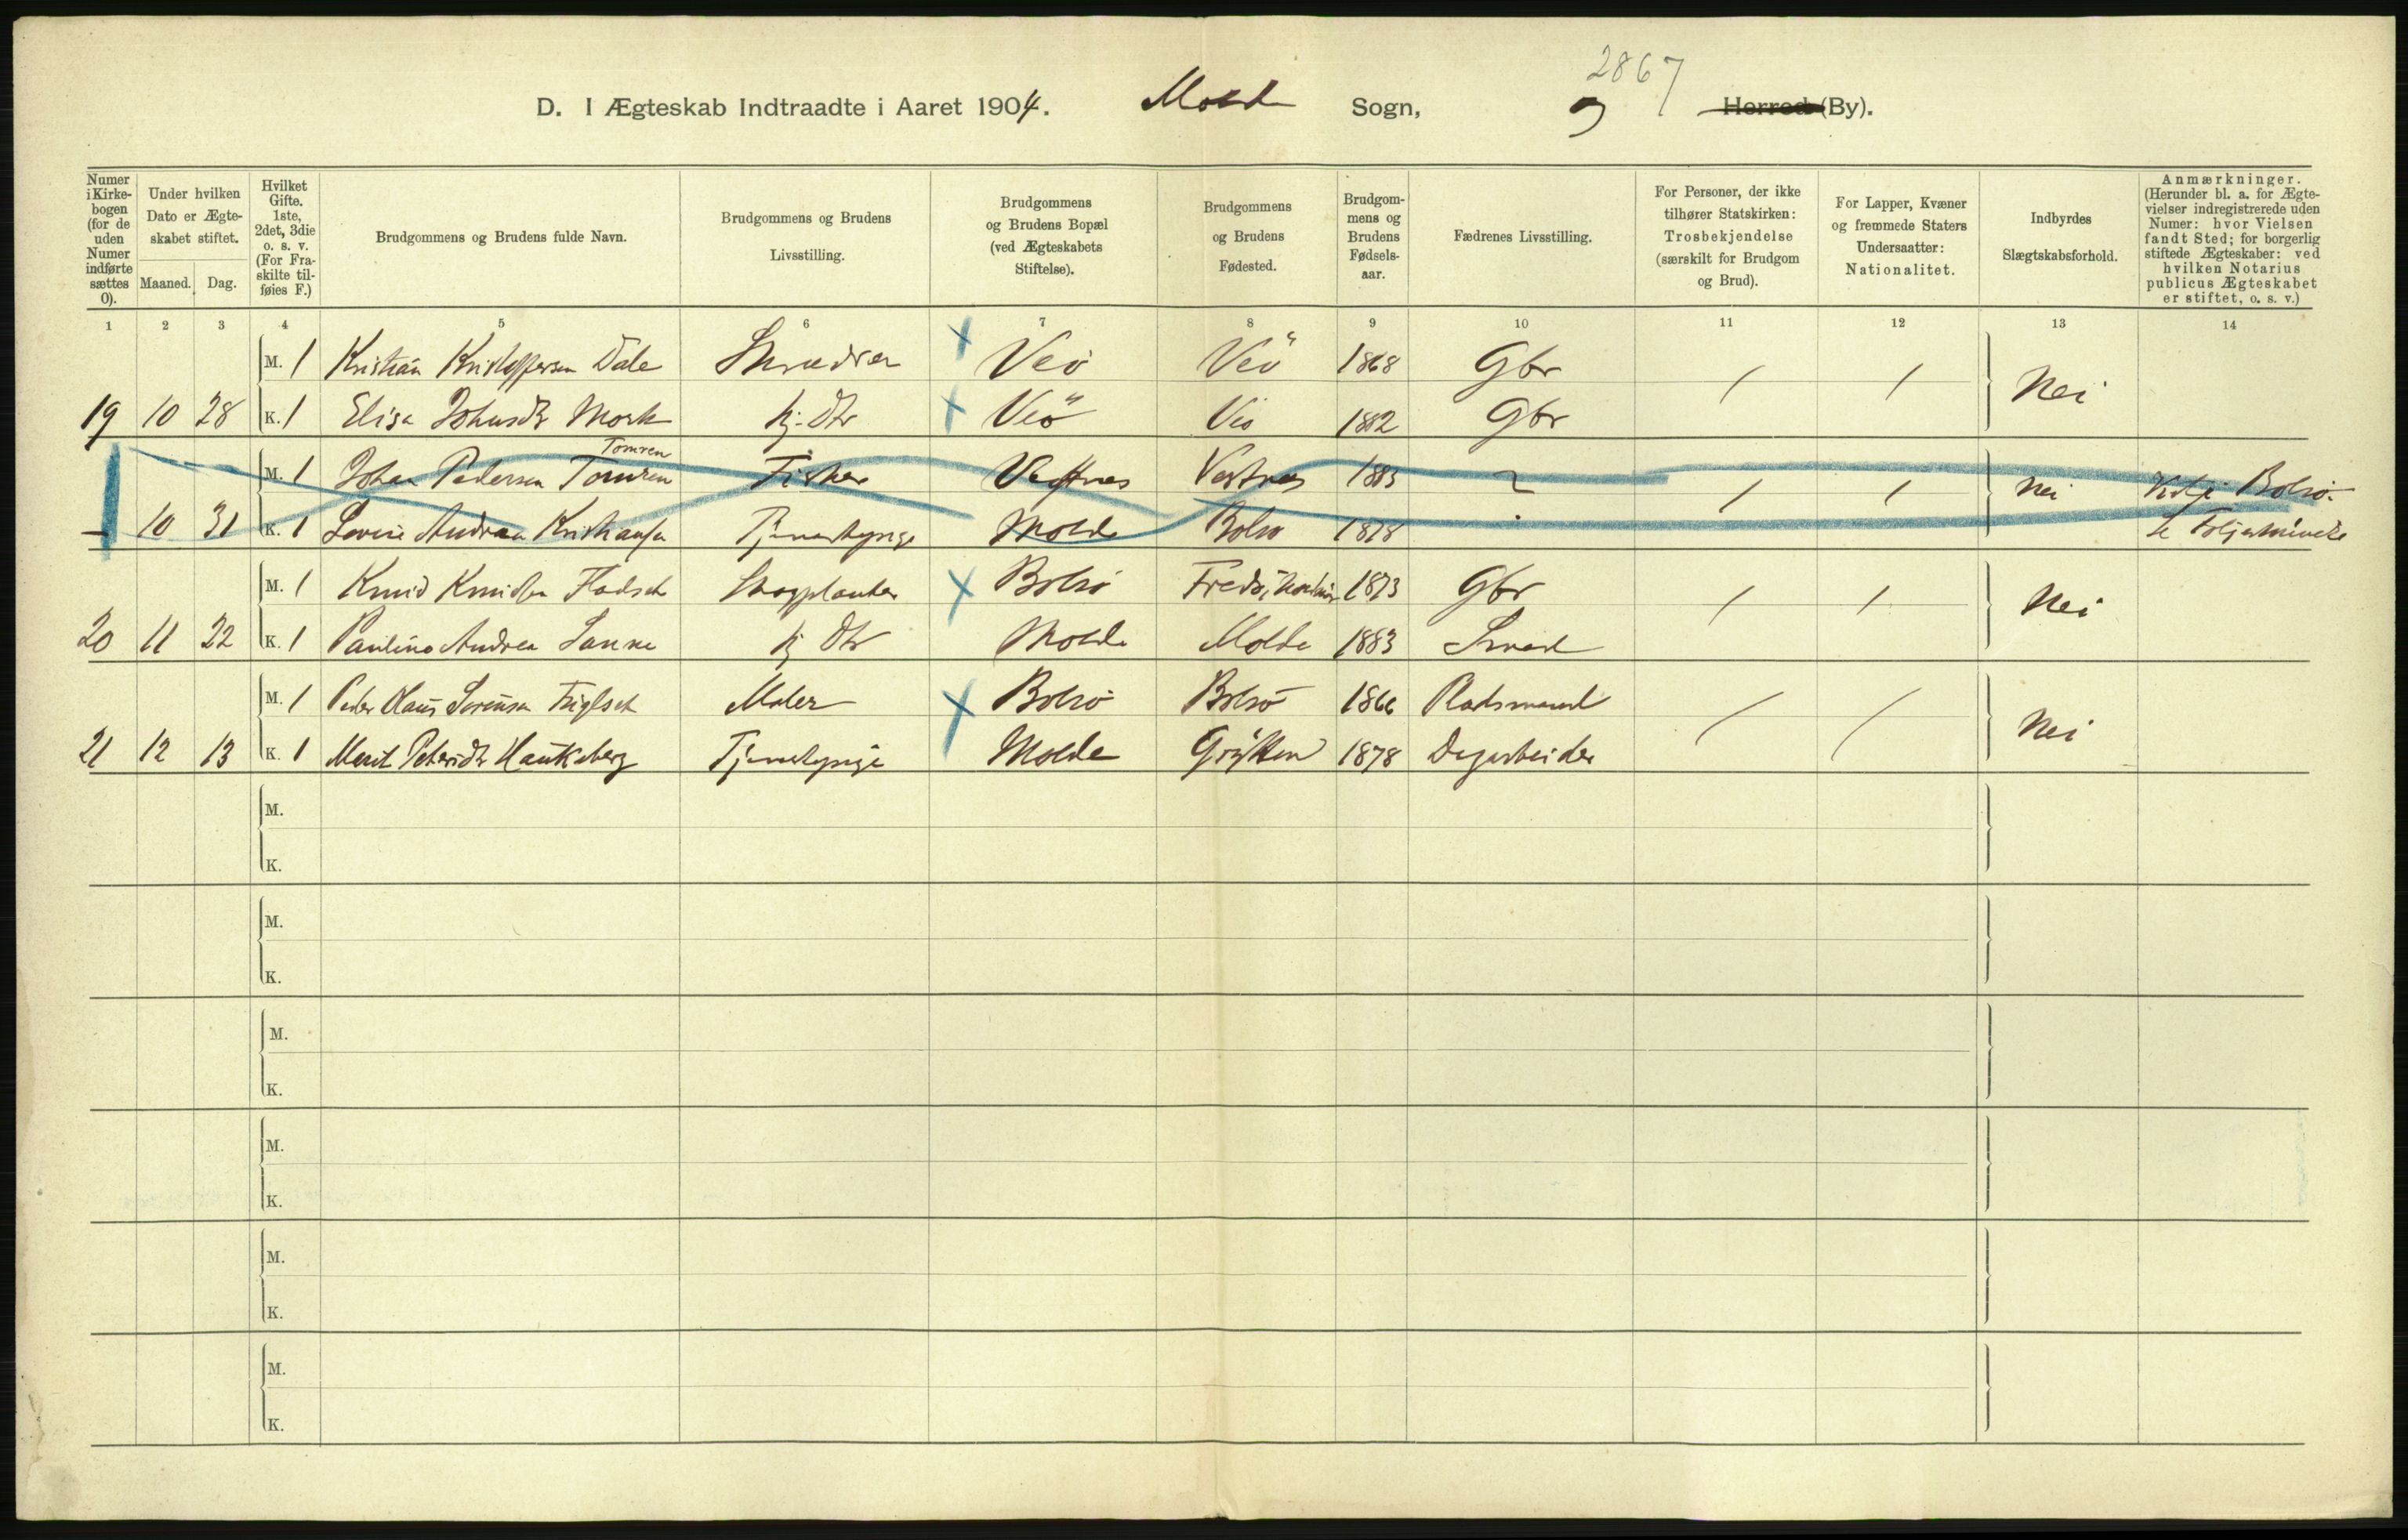 2867
D. I Ægteskab Indtraadte i Aaret 1904. Molde Sogn, og Herred (By).
Numer i Kirkebogen (for de uden Numer indførte sættes 0).
Under hvilken Dato er Ægteskabet stiftet. Maaned. Dag.
Hvilket Gifte. 1ste, 2det, 3die o. s. v. (For Fraskilte tilføies F.)
Brudgommens og Brudens fulde Navn.
Brudgommens og Brudens Livsstilling.
Brudgommens og Brudens Bopæl (ved Ægteskabets Stiftelse).
Brudgommens og Brudens Fødested.
Brudgommens og Brudens Fødselsaar.
Fædrenes Livsstilling.
For Personer, der ikke tilhører Statskirken: Trosbekjendelse (særskilt for Brudgom og Brud).
For Lapper, Kvæner og fremmede Staters Undersaatter: Nationalitet.
Indbyrdes Slægtskabsforhold.
Anmærkninger. (Herunder bl. a. for Ægtevielser indregistrerede uden Numer: hvor Vielsen fandt Sted; for borgerlig stiftede Ægteskaber: ved hvilken Notarius publicus Ægteskabet er stiftet, o. s. v.)
1 2 3 4 5 6 7 8 9 10 11 12 13 14
M. 1 Kristian Kristoffersen Dale Skrædder Veø Veø 1868 Gbr / / Nei
19 10 28 K. 1 Elisa Johnsdtr Mork hj. Dtr Veø Veø 1882 Gbr
Tomren
M. 1 Johan Pedersen Tomren Fisker Vestnes Vestnes 1883 / / Nei Viet i Bolsø.
— 10 31 K. 1 Lovise Andrea Kristiansen Tjenestepige Molde Bolsø 1878
M. 1 Knud Knudsen Fladset Skogplanter Bolsø Fredø, Nordmøre 1873 Gbr / / Nei
20 11 22 K. 1 Pauline Andrea Sanne hj Dtr Molde Molde 1883 Smed
M. 1 Peder Claus Sørensen Fuglset Maler Bolsø Bolsø 1866 Pladsmand / / Nei
21 12 13 K. 1 Marit Petersdtr Haukaberg Tjenestepige Molde Grytten 1878 Dagarbeider
M.
K.
M.
K.
M.
K.
M.
K.
M.
K.
M.
K.